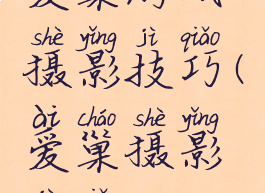 shè yǐng jì qiǎo
摄影技巧(
ài cháo shè yǐng
爱巢摄影